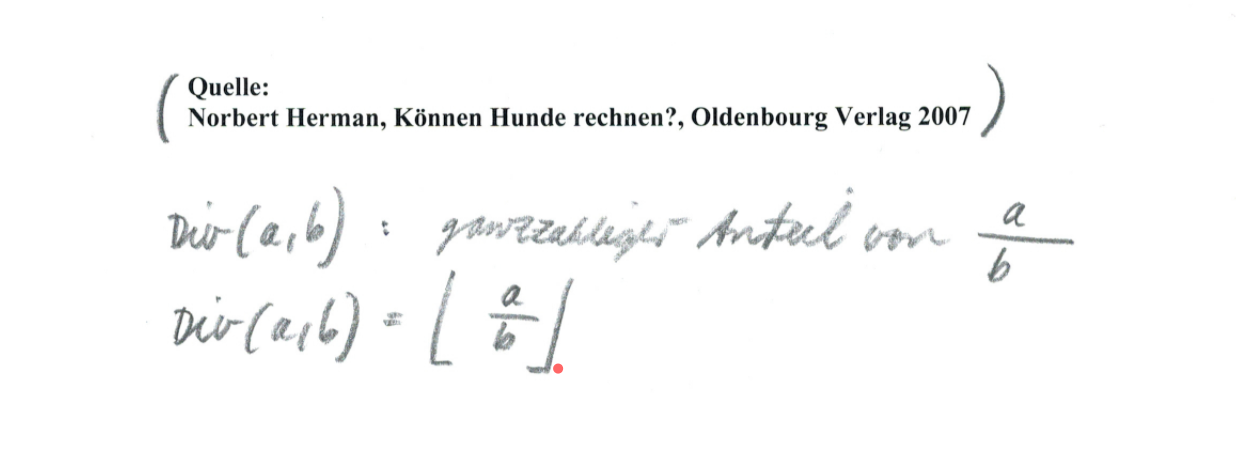 ( Quelle:
Norbert Herman, Können Hunde rechnen?, Oldenbourg Verlag 2007 )
Div(a,b) : ganzzahliger Anteil von a/b
Div(a,b) = ⌊a/b⌋